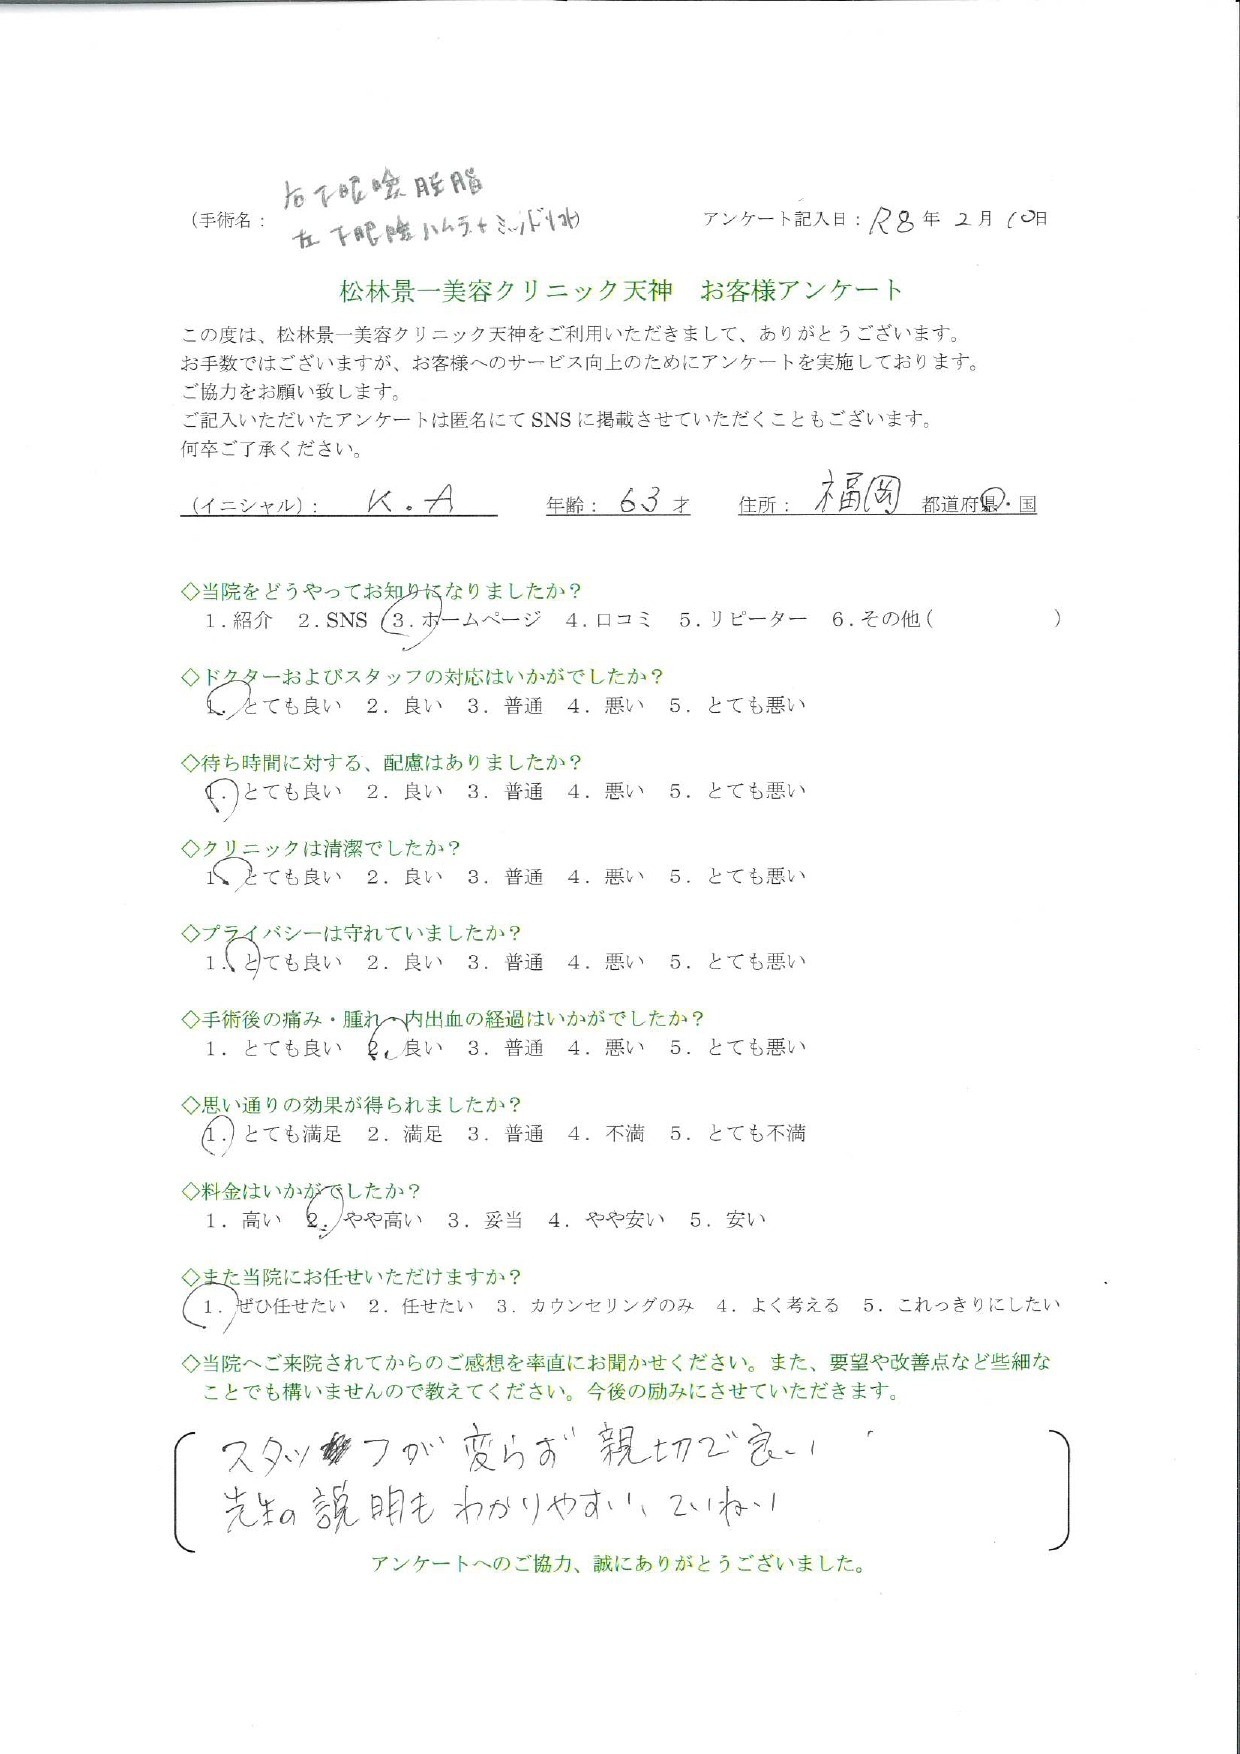 右下眼瞼脱脂
(手術名: 左下眼瞼ハムラ+ミッドリフト) アンケート記入日:R8年2月10日
松林景一美容クリニック天神 お客様アンケート
この度は、松林景一美容クリニック天神をご利用いただきまして、ありがとうございます。
お手数ではございますが、お客様へのサービス向上のためにアンケートを実施しております。
ご協力をお願い致します。
ご記入いただいたアンケートは匿名にてSNSに掲載させていただくこともございます。
何卒ご了承ください。
(イニシャル): K.A 年齢:63才 住所:福岡 都道府県・国
◇当院をどうやってお知りになりましたか?
1.紹介 2.SNS 3.ホームページ 4.口コミ 5.リピーター 6.その他( )
◇ドクターおよびスタッフの対応はいかがでしたか?
1. とても良い 2. 良い 3. 普通 4. 悪い 5. とても悪い
◇待ち時間に対する、配慮はありましたか?
1. とても良い 2. 良い 3. 普通 4. 悪い 5. とても悪い
◇クリニックは清潔でしたか?
1. とても良い 2. 良い 3. 普通 4. 悪い 5. とても悪い
◇プライバシーは守れていましたか?
1. とても良い 2. 良い 3. 普通 4. 悪い 5. とても悪い
◇手術後の痛み・腫れ・内出血の経過はいかがでしたか?
1. とても良い 2. 良い 3. 普通 4. 悪い 5. とても悪い
◇思い通りの効果が得られましたか?
1. とても満足 2. 満足 3. 普通 4. 不満 5. とても不満
◇料金はいかがでしたか?
1. 高い 2. やや高い 3. 妥当 4. やや安い 5. 安い
◇また当院にお任せいただけますか?
1. ぜひ任せたい 2. 任せたい 3. カウンセリングのみ 4. よく考える 5. これっきりにしたい
◇当院へご来院されてからのご感想を率直にお聞かせください。また、要望や改善点など些細な
ことでも構いませんので教えてください。今後の励みにさせていただきます。
スタッフが変らず親切で良い
先生の説明もわかりやすい、ていねい
アンケートへのご協力、誠にありがとうございました。